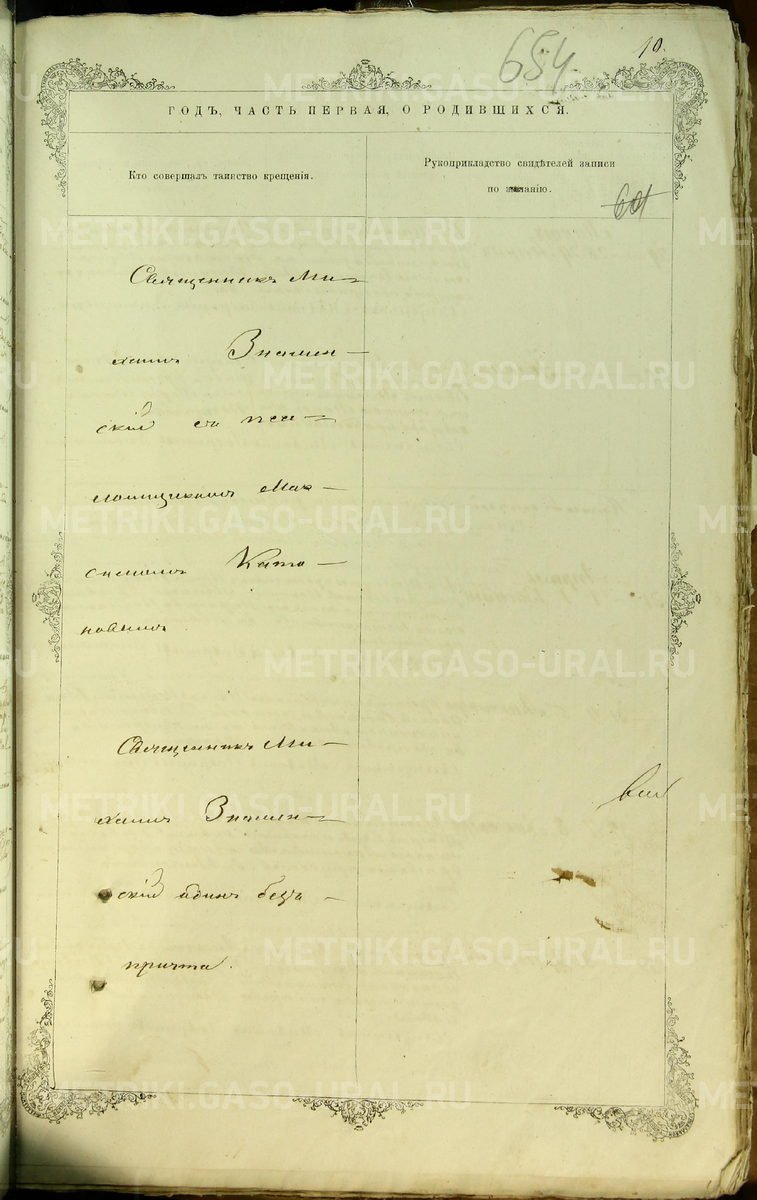 654
10.
ГОДЪ, ЧАСТЬ ПЕРВАЯ, О РОДИВШИХСЯ.
Кто совершалъ таинство крещенія.
Рукоприкладство свидѣтелей записи
по желанію.
601
Священникъ Ми
хаилъ Знамен
скій съ пса
ломщикомъ Мак
симомъ Ката
новымъ
Священникъ Ми
хаилъ Знамен
скій одинъ безъ
причта.
METRIKI.GASO-URAL.RU